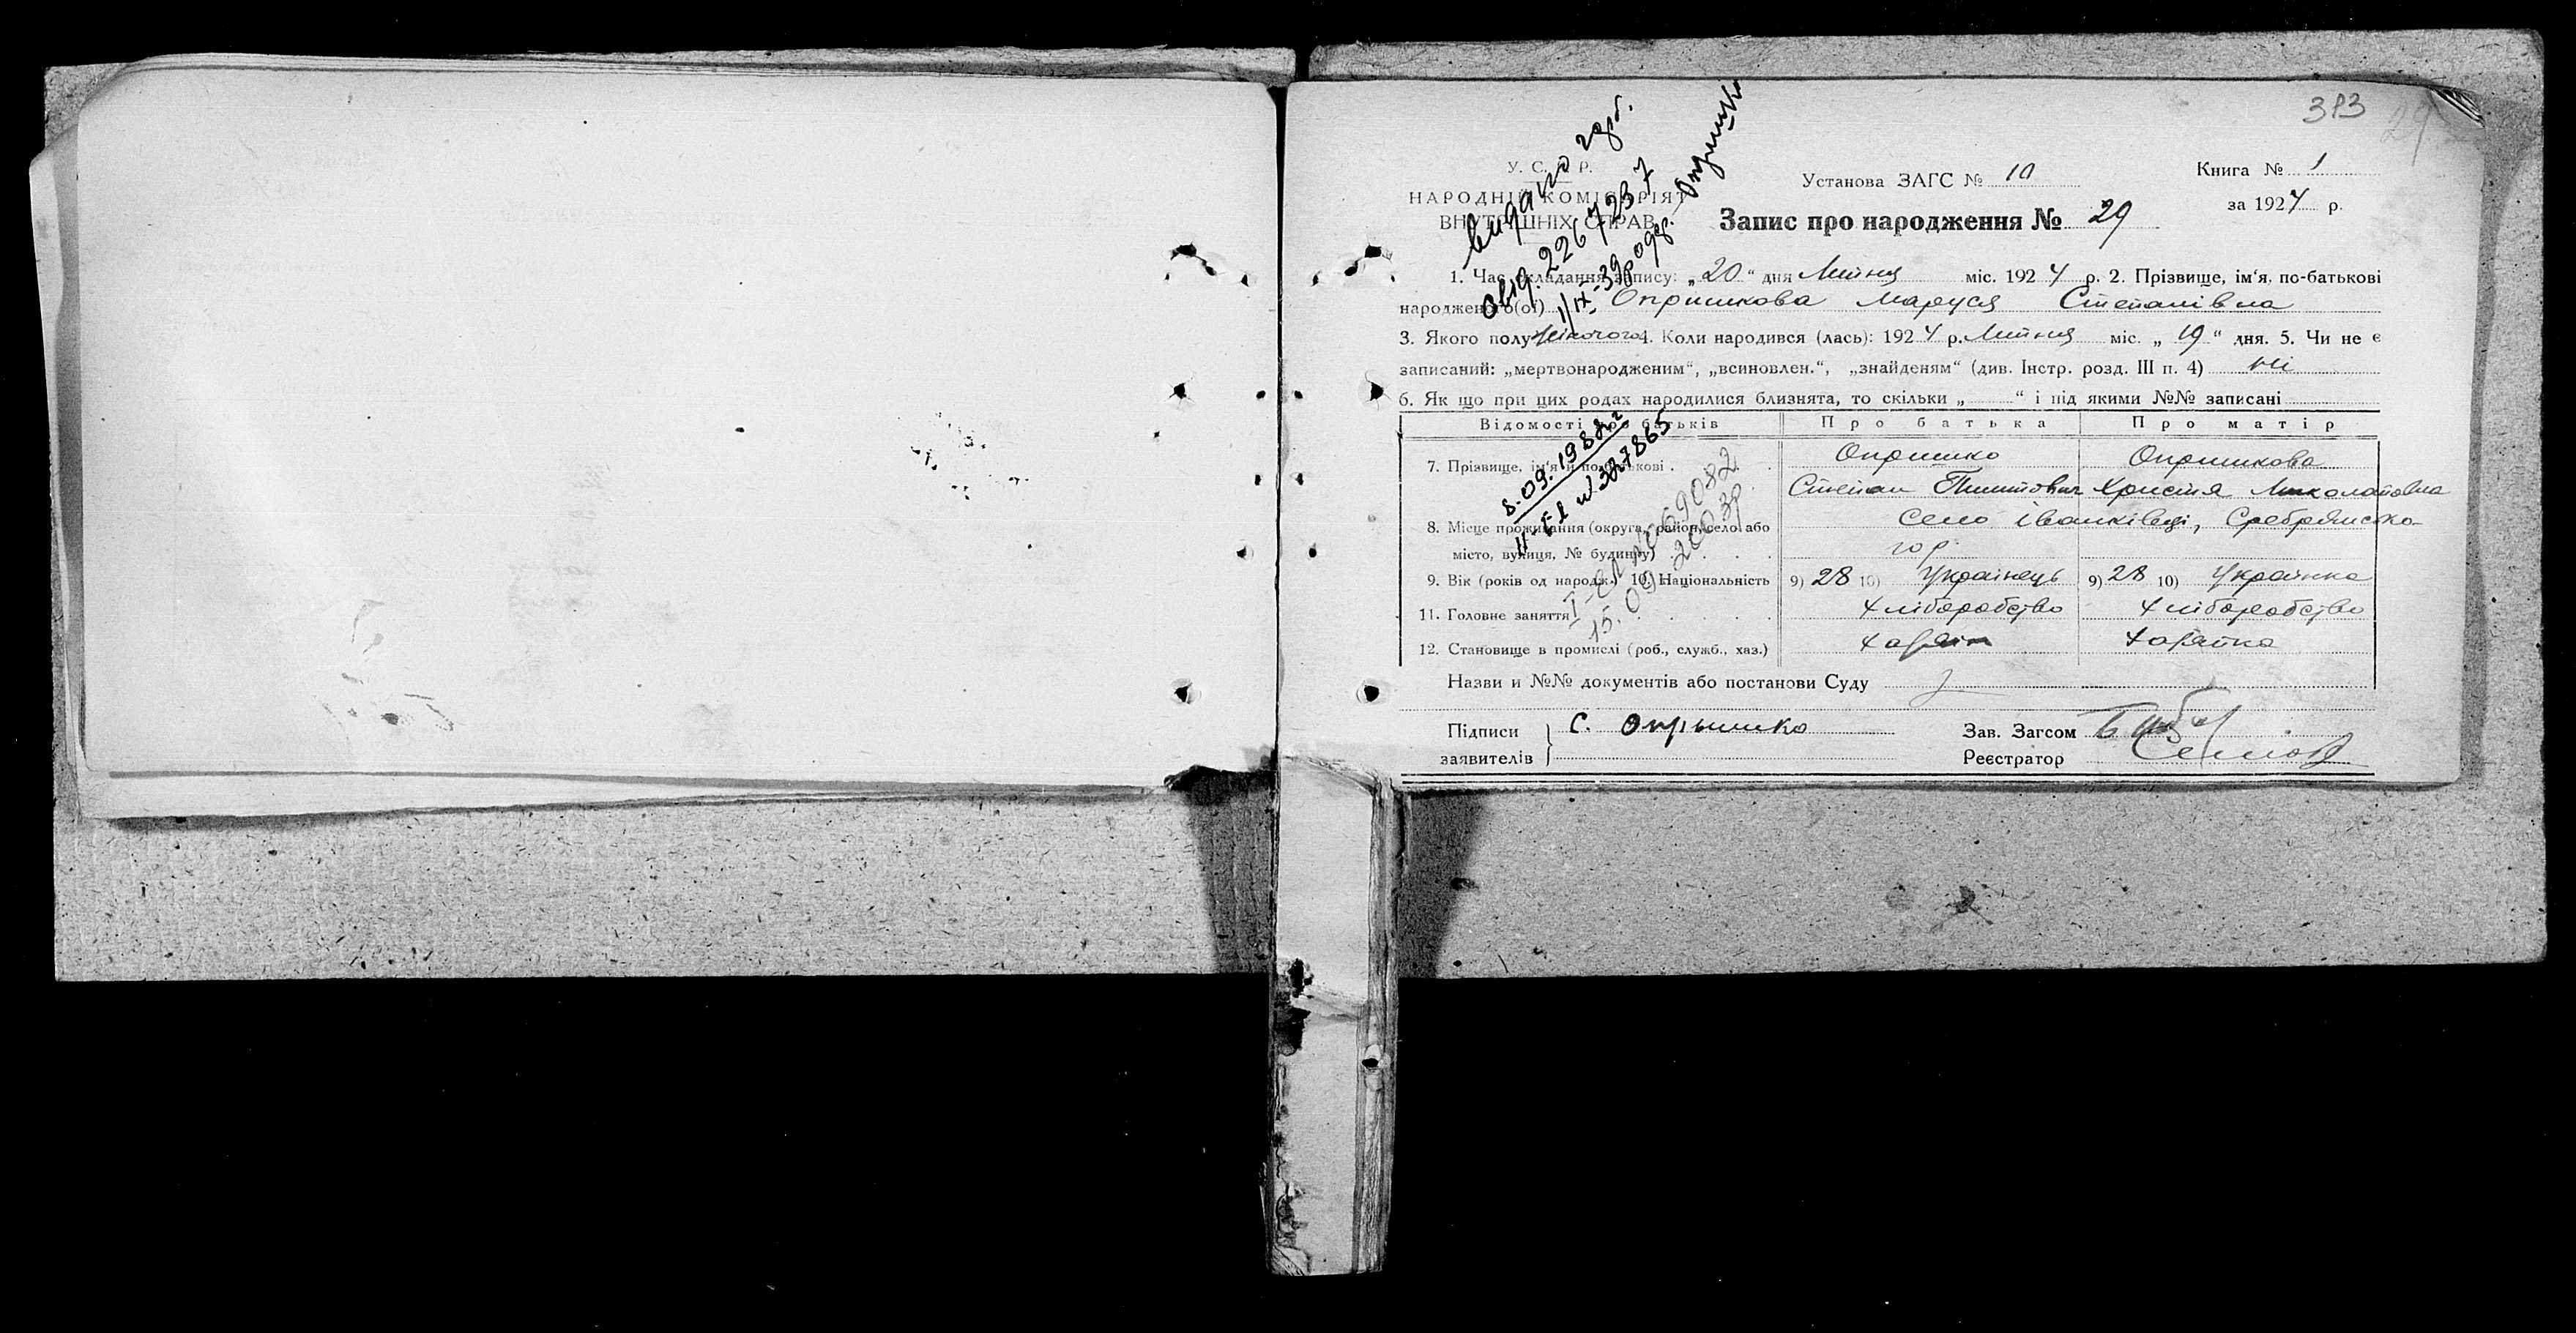 313
29
У. С. Р. Р.
НАРОДНІЙ КОМІСАРІЯТ
ВНУТРІШНІХ СПРАВ
Установа ЗАГС № 10
Книга № 1
за 1924 р.
Запис про народження № 29
1. Час складання запису: „20“ дня Липня міс. 1924 р. 2. Прізвище, ім'я, по-батькові
народженого(ої) Опришкова Маруся Степанівна
3. Якого полу жіночого 4. Коли народився (лась): 1924 р. Липня міс. „19“ дня. 5. Чи не є
записаний: „мертвонародженим“, „всиновлен.“, „знайденям“ (див. Інстр. розд. III п. 4) ні
6. Як що при цих родах народилися близнята, то скільки „ “ і під якими №№ записані
Відомості про батьків Про батька Про матір
7. Прізвище, ім'я й по-батькові Опришко Опришкова
Степан Христя Миколаївна
8. Місце проживання (округа, район, село або Село Іванківці,
місто, вулиця, № будинку)
9. Вік (років од народж.) 10. Національність 9) 28 10) Українець 9) 28 10) Українка
11. Головне заняття Хліборобство Хліборобство
12. Становище в промислі (роб., служб., хаз.) Хазяін Хазяйка
Назви и №№ документів або постанови Суду
Підписи заявителів С. Опрышко
Зав. Загсом
Реєстратор
видано
2267237
Опришко
8.09.1988г
II-ЕЛ № 327865
15.09 2003р